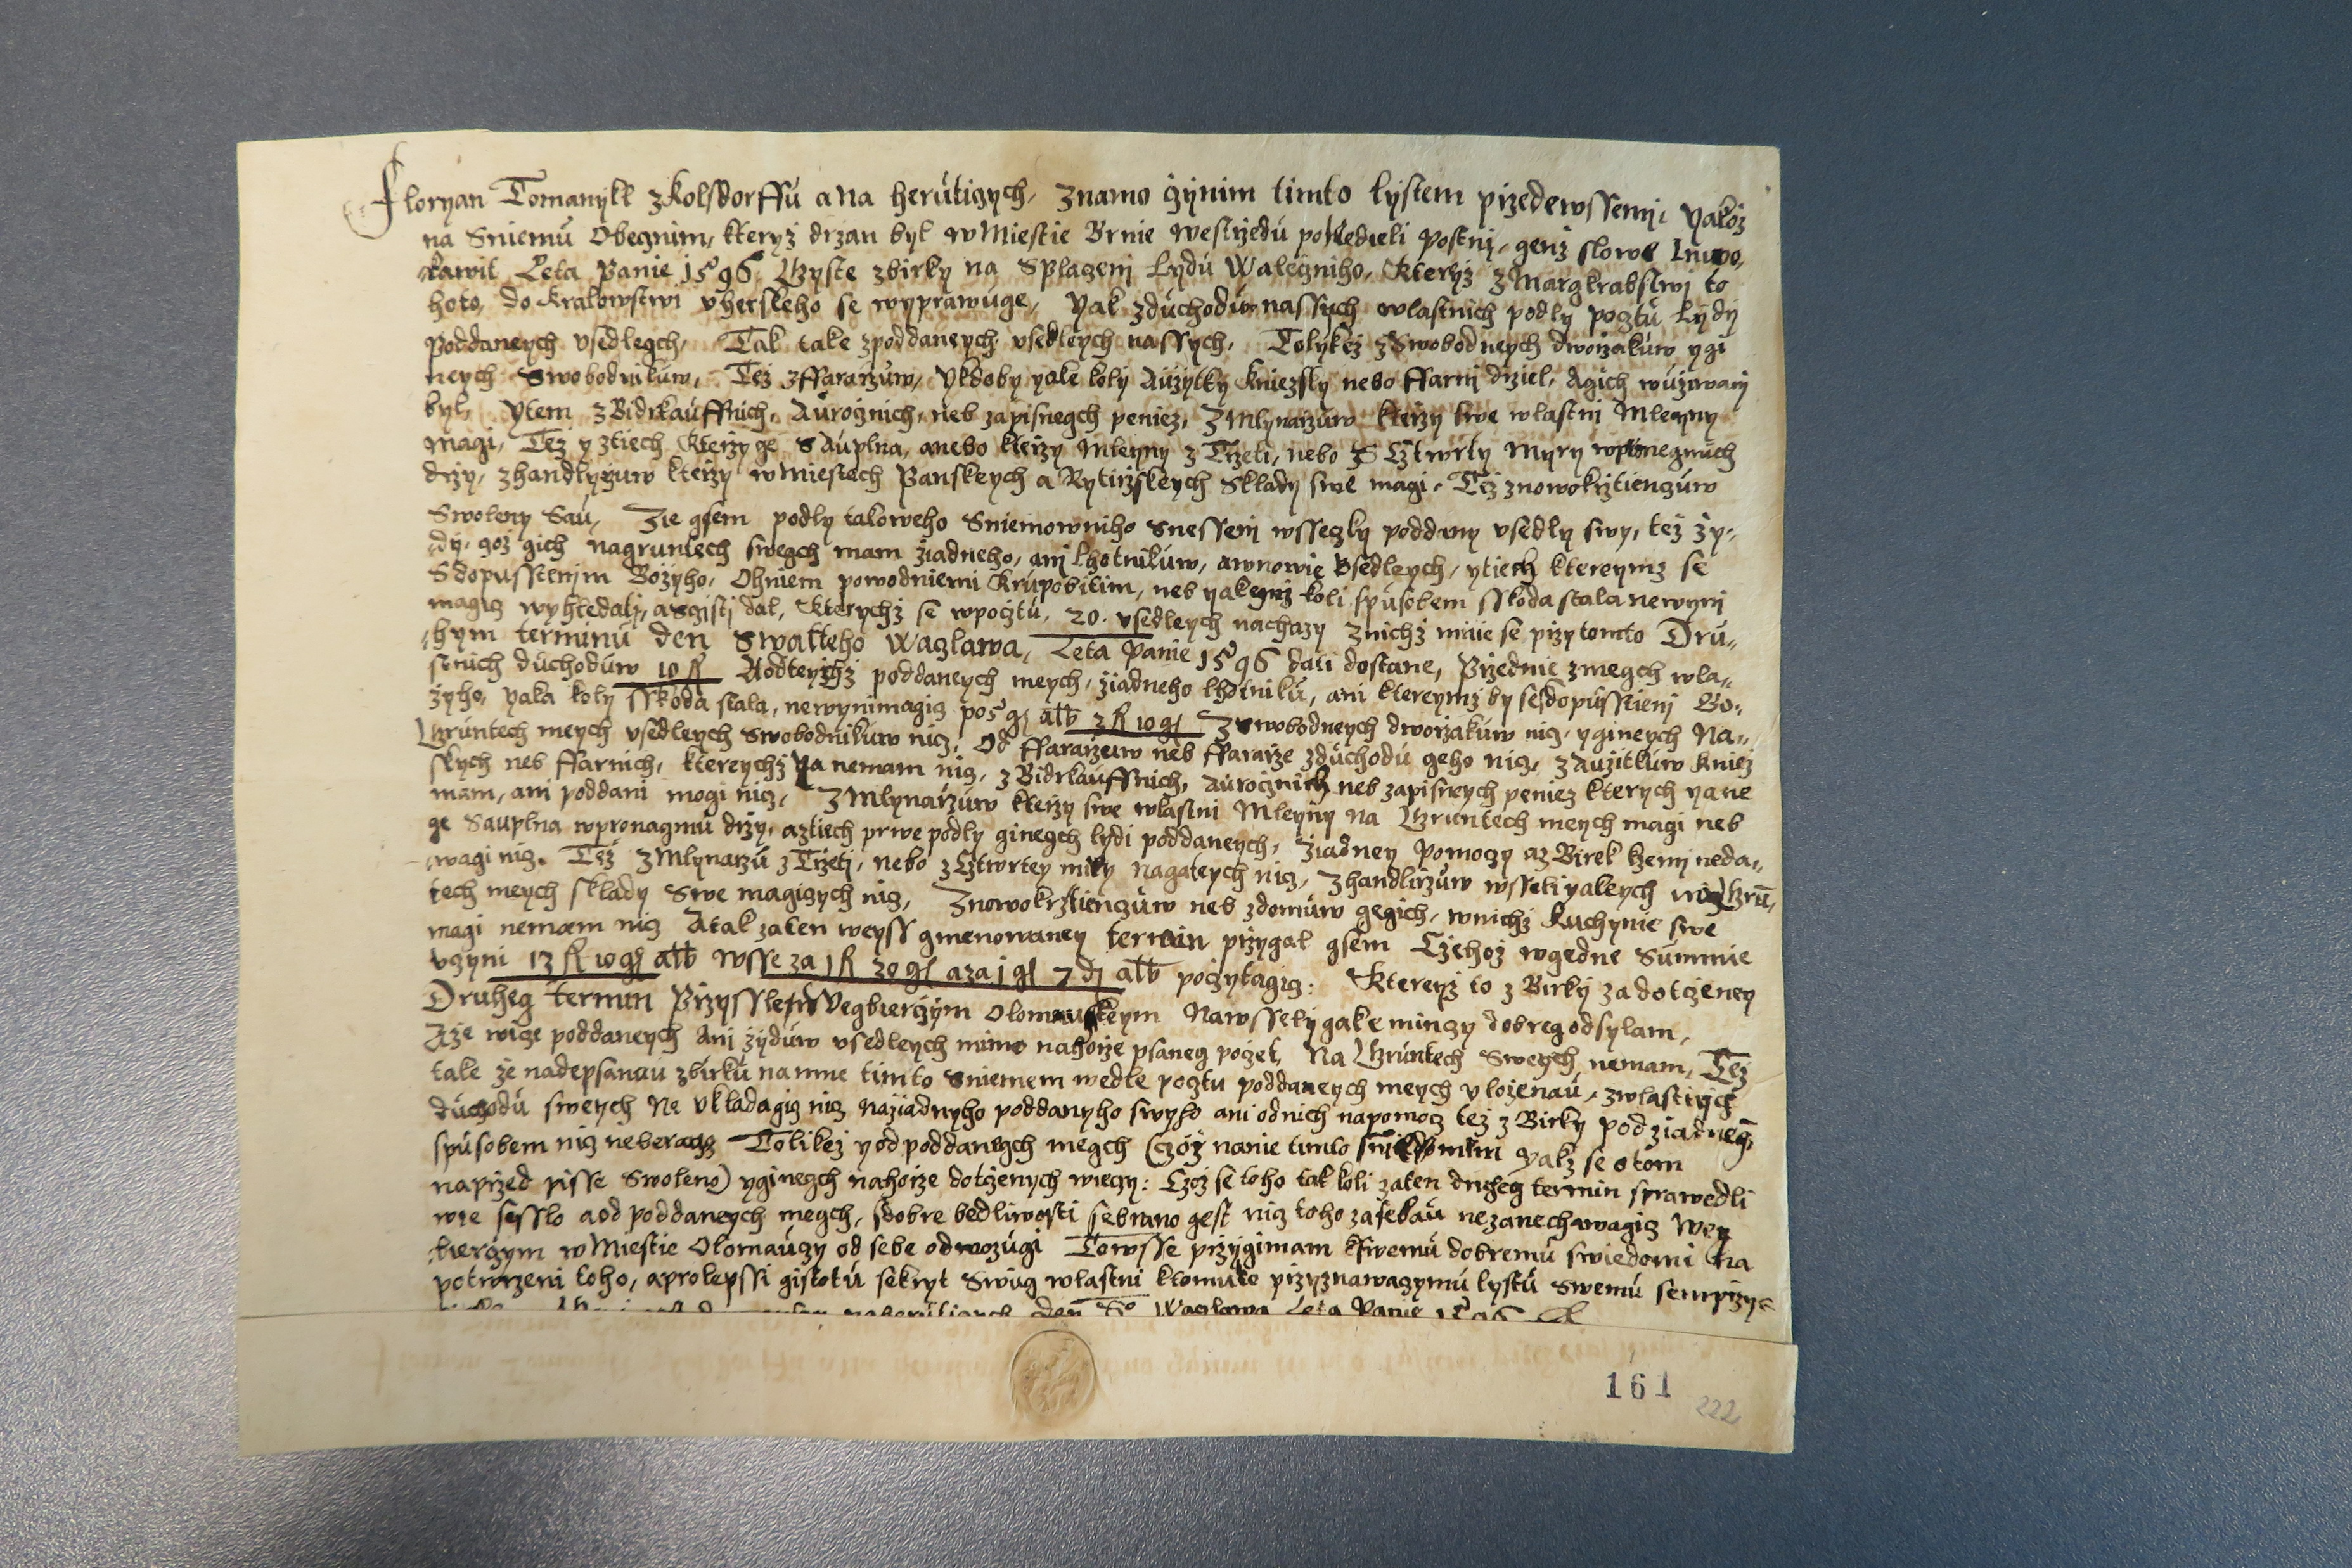 Floryan Tomanykl z Kolsdorffu a na Herůticzych, Znamo czynim timto lystem przedewssemi, Yakoz
na Sniemu Obecznim, kteryz drzan byl w Miestie Brnie westrzedu po Nedieli Postny, genz slowe Inuo,
cawit Leta Panie 1596 Uzyste zbirky na Splaczeni Lydu Waleczniho, kteryz z Margkrabstwi to
hoto, do Kralowstwi Uherskeho se wyprawuge, Yak z duchoduw nassych wlastnich podly pocztu Lydy
Poddaneych usedlegch, Tak take z poddaneych usedleych nassych, Tolykez z Swobodneych dworzakuw y gi
neych Swobodnikuw, Tez z ffararzuw, Y kdoby yake koly Auzytky kniezsky nebo ffarni drziel, A gich wuziwani
byl, Ytem z Bidrkauffnich, Auroznich, neb zapisnegch peniez, Z Mlynarzuw kterzy swe wlastni Mleyny
magi, Tez y z tiech kterzy ge S Auplna, anebo kterzy Mleyny z Trzeti, nebo Z Cztwrty Myry w pronegmuch
drzy, z handlyrzuw kterzy w Miestech Panskeych a Rytirzskeych Sklady swe magi, Tez z nowokrztienczuw
Swoleny Sau, Zie gsem podly takoweho Sniemowniho Snesseni wsseczky poddany usedly swy, tez zy,
dy, coz gich na gruntech swegch mam ziadneho, ani lhotnikuw, a w nowie usedleych, y tiech ktereymz se
S dopusstenim Bozyho, Ohniem powodniemi Krupobitim, neb yakeymz koli spusobem sskoda stala newyni
magicz wyhledati, a sczisti dal, Kterychz se w pocztu, 20. usedleych nachazy z nichz mnie se przy tomto Dru,
hym terminu den Swatteho Waczlawa, Leta Panie 1596 dati dostane, Przednie z megch wla,
stnich duchoduw 10 fl A od teychz poddaneych meych, ziadneho lhotniku, ani ktereymz by se z dopusstieni Bo,
zyho, yaka koly sskoda stala, newynimagicz po 5 gl alb 3 fl 10 gl Z swobodneych dworzakuw nicz, y gineych Na,
Gruntech meych usedleych Swobodnikuw nicz, Od ffararzuw neb ffararze z duchodu geho nicz, z Auzitkuw kniez
skych neb ffarnich, ktereychz ya nemam nicz, z Bidrkauffnich, Auroznich neb zapisneych peniez kterych ya ne
mam, ani poddani mogi nicz, Z Mlynarzuw kterzy swe wlastni Mleyny na Gruntech meych magi neb
ge Sauplna w pronagmu drzy, a z tiech prwe podly ginegch lydi poddaneych, Ziadney Pomoczy a z Birek kzemi neda,
wagi nicz. Tez z Mlynarzu z Trzeti, nebo z Cztwrtey miry nagateych nicz, Z handlirzuw wsselikyakeych na Grun,
tech meych sklady Swe magiczych nicz, Z nowokrztienczuw neb z domuw gegich, w nichz Kuchynie swe
magi nemam nicz A tak za ten weyss gmenowaney termin przygal gsem Czehoz w gedne Summie
uczyni 13 fl 10 gl alb wsse za 1 fl 30 gl a za 1 gl 7 dl alb poczytagicz: Ktereyz to z Birky za dotczeney
Druheg termin Przyssleym Wegbierczym Olomauskeym Na wssely gake minczy dobreg odsylam,
A ze wicze poddaneych Ani zyduw usedleych mimo nahorze psaneg poczet, Na Gruntech Swegch nemam, Tez
take ze nadepsanau zbirku na mne timto Sniemem wedle pocztu poddaneych meych ulozenau, z wlastnych
duchodu sweych Ne ukladagicz nicz na ziadnyho poddanyho swyho ani od nich na pomocz tez z Birky pod ziadneg
spusobem nicz neberaucz Tolikez y od poddaneych megch (czoz na nie timto Yakz se o tom
naprzed pisse Swoleno) y ginegch nahorze dotczenych wieczy: Czoz se toho tak koli za ten druheg termin sprawedli
wie sesslo a od poddaneych megch, s dobre bedliwosti sebrano gest nicz toho za sebau nezanechawagicz Wey
bierczym w Miestie Olomauczy od sebe odwozugi To wsse przygimam k swemu dobremu swiedomi Na
potwrzeni toho, a pro lepssi gistotu sekryt Swug wlastni k tomute przyznawaczymu lystu Swemu sem przy,
na Heruticzych den So Waczlawa Leta Panie 1596
161
222